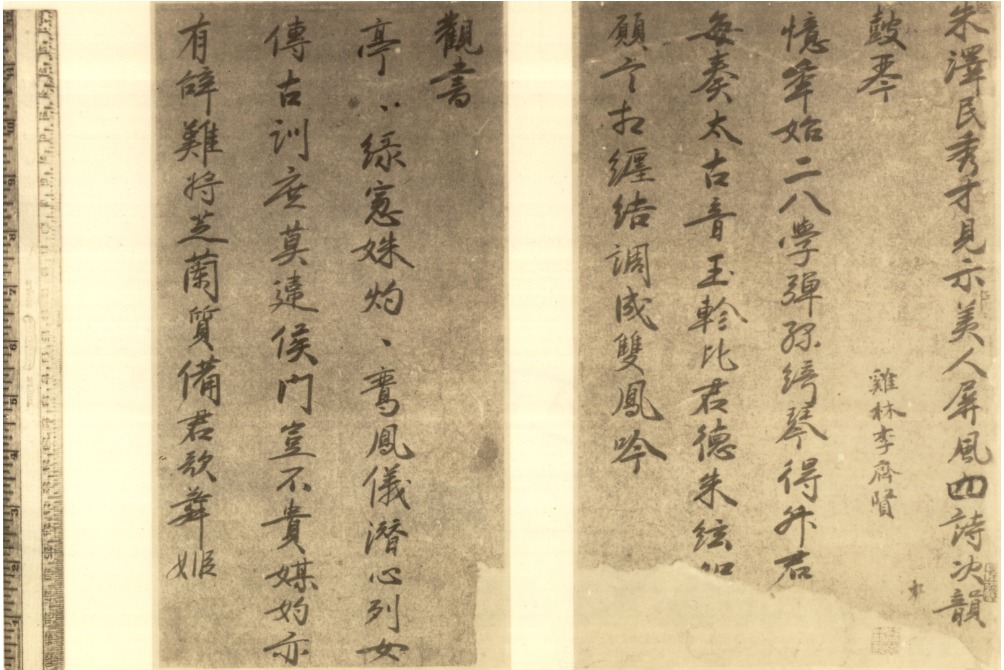 朱澤民秀才見示美人屏風四詩次韻
雞林李齊賢
鼓琴
憶年始二八學彈綺琴得升君
每奏太古音玉軫比君德朱絃
願言相纏結調成雙鳳吟
觀書
亭〻綠窓姝灼〻鸞鳳儀潜心列女
傳古訓庶莫違侯門豈不貴媒妁亦
有辭難將芝蘭質備君歌舞姬